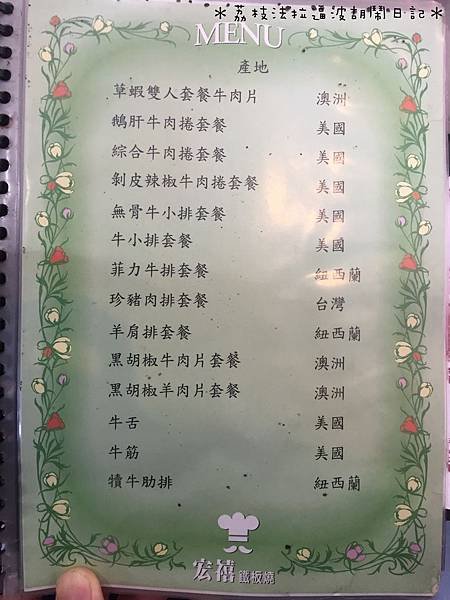 ＊荔枝法拉逼波胡鬧日記＊
MENU
產地
草蝦雙人套餐牛肉片 澳洲
鵝肝牛肉捲套餐 美國
綜合牛肉捲套餐 美國
剝皮辣椒牛肉捲套餐 美國
無骨牛小排套餐 美國
牛小排套餐 美國
菲力牛排套餐 紐西蘭
珍豬肉排套餐 台灣
羊肩排套餐 紐西蘭
黑胡椒牛肉片套餐 澳洲
黑胡椒羊肉片套餐 澳洲
牛舌 美國
牛筋 美國
犢牛肋排 紐西蘭
宏禧 鐵板燒